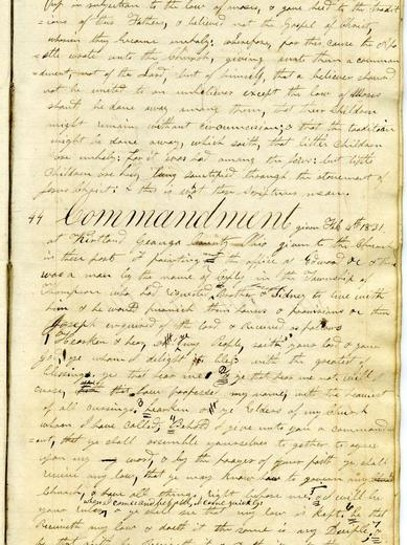 up in subjection to the law of moses, & gave heed to the tradit
ions of their Father, & believed not the Gospel of Christ,
wherein they became unholy; wherefore, for this cause the Apo
stle wrote unto the Church, giving unto them a comman
dment, not of the Lord, but of himself, that a believer should
not be united to an unbeliever except the law of Moses
should be done away among them, that their Children
might remain without circumcision; & that the tradition
might be done away, which saith, that little Children
are unholy; for it was had among the Jews: but little
Children are holy being sanctified through the atonement of
Jesus Christ; & this is what the Scriptures mean
44 Commandment given Feb 4th 1831.
at Kirtland Geauga County Ohio given to the Church
in their
was a man by the name of in the Township of
Thompson who had requested Brother & Sidney to live with
him & he would furnish them houses & provisions &c then
Joseph enquired of the Lord & Received as follows
Hearken & hear, O ye my People, saith your Lord & your
God, ye whom I delight to bless with the greatest of
blessings ye that hear me & ye that hear me not will I
curse, that have professed my name, with the heaviest
of all cursings. hearken O ye Elders of my Church
whom I have called, Behold I give unto you a command
ment, that ye shall assemble yourselves to gether to agree
upon my word, & by the prayer of your faith ye shall
receive my law, that ye may know how to govern my
Church, & have all things right before me. & I will be
your Ruler, & ye shall see that my law is kept. he that
Receiveth my law & doeth it the same is my Disciple, &